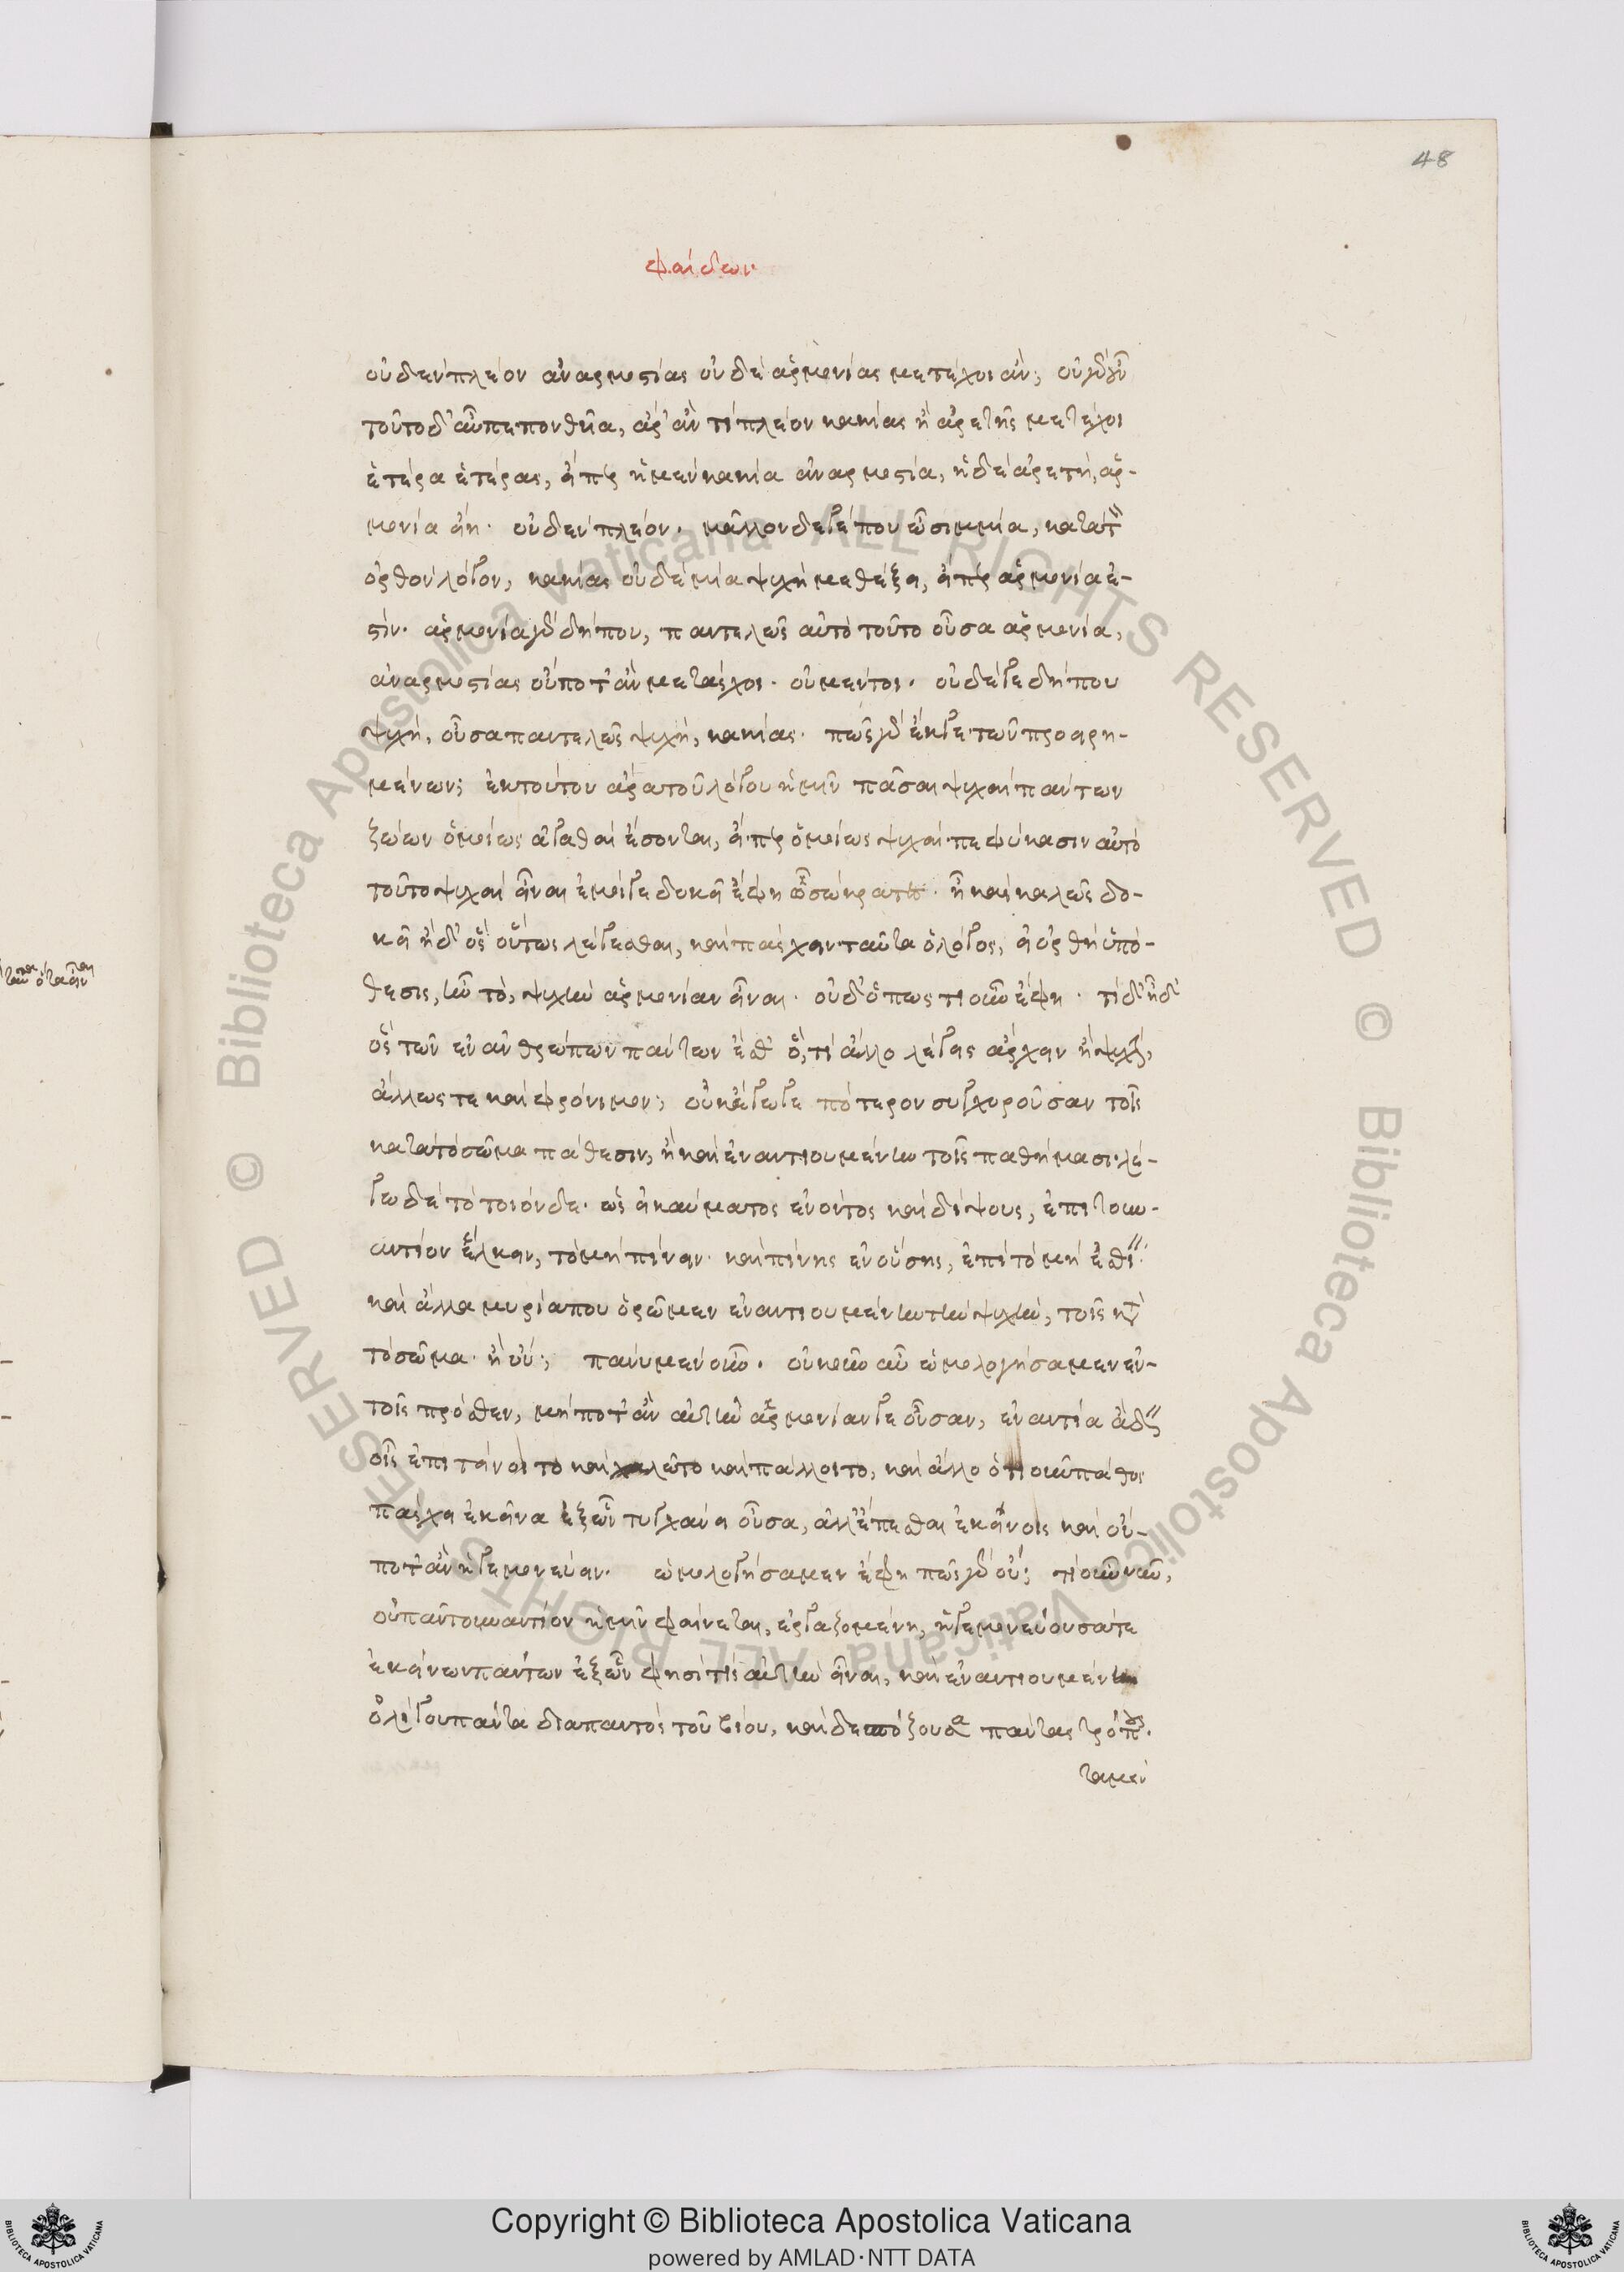 48
φαίδων
οὐδὲν πλέον ἀναρμοστίας οὐδὲ ἁρμονίας μετέχοι ἄν; οὐ γὰρ οὖν
τοῦτο δ' αὖ πεπονθυῖα, ἆρ' ἄν τι πλέον κακίας ἢ ἀρετῆς μετέχοι
ἑτέρα ἑτέρας, εἴπερ ἡ μὲν κακία ἀναρμοστία, ἡ δὲ ἀρετὴ, ἁρ-
μονία εἴη· οὐδὲν πλέον· μᾶλλον δέ γέ που ὦ σιμμία, κατὰ τὸν
ὀρθὸν λόγον, κακίας οὐδεμία ψυχὴ μεθέξει, εἴπερ ἁρμονία ἐ-
στίν· ἁρμονία γὰρ δήπου, παντελῶς αὐτὸ τοῦτο οὖσα ἁρμονία,
ἀναρμοστίας οὔποτ' ἂν μετάσχοι· οὐ μέντοι· οὐδέ γε δήπου
ψυχὴ, οὖσα παντελῶς ψυχὴ, κακίας· πῶς γὰρ ἔκ γε τῶν προειρη-
μένων; ἐκ τούτου ἄρα τοῦ λόγου ἡμῖν πᾶσαι ψυχαὶ πάντων
ζώων ὁμοίως ἀγαθαὶ ἔσονται, εἴπερ ὁμοίως ψυχαὶ πεφύκασιν αὐτὸ
τοῦτο ψυχαὶ εἶναι ἔμοιγε δοκεῖ ἔφη ὦ σώκρατες· ἦ καὶ καλῶς δο-
κεῖ ἦ δ' ὃς οὕτως λέγεσθαι, καὶ πάσχειν ταῦτα ὁ λόγος, εἰ ὀρθὴ ἡ ὑπό-
θεσις, ἦν τὸ, ψυχὴν ἁρμονίαν εἶναι· οὐδ' ὁπωστιοῦν ἔφη· τί δ' ἦ δ'
ὃς τῶν ἐν ἀνθρώπῳ πάντων ἔσθ' ὅ, τι ἄλλο λέγεις ἄρχειν ἢ ψυχὴν,
ἄλλως τε καὶ φρόνιμον; οὐκ ἔγωγε πότερον συγχωροῦσαν τοῖς
κατὰ τὸ σῶμα πάθεσιν, ἢ καὶ ἐναντιουμένην τοῖς παθήμασι· λέ-
γω δὲ τὸ τοιόνδε· ὡς εἰ καύματος ἐνόντος καὶ δίψους, ἐπὶ τοὐν-
αντίον ἕλκειν, τὸ μὴ πίνειν· καὶ πείνης ἐνούσης, ἐπὶ τὸ μὴ ἐσθίειν·
καὶ ἄλλα μυρία που ὁρῶμεν ἐναντιουμένην τὴν ψυχὴν, τοῖς κατὰ
τὸ σῶμα· ἢ οὔ; πάνυ μὲν οὖν· οὐκοῦν αὖ ὡμολογήσαμεν ἐν
τοῖς πρόσθεν, μήποτ' ἂν αὐτὴν ἁρμονίαν γε οὖσαν, ἐναντία ᾄδειν
οἷς ἐπιτείνοιτο καὶ χαλῷτο καὶ πάλλοιτο, καὶ ἄλλο ὁτιοῦν πάθος
πάσχει ἐκεῖνα ἐξ ὧν τυγχάνει οὖσα, ἀλλ' ἕπεσθαι ἐκείνοις καὶ οὔ-
ποτ' ἂν ἡγεμονεύειν· ὡμολογήσαμεν ἔφη πῶς γὰρ οὔ; τί οὖν νῦν,
οὐ πᾶν τοὐναντίον ἡμῖν φαίνεται, ἐργαζομένη, ἡγεμονεύουσά τε
ἐκείνων πάντων ἐξ ὧν φησί τις αὐτὴν εἶναι, καὶ ἐναντιουμένη
ὀλίγου πάντα διὰ παντὸς τοῦ βίου, καὶ δεσπόζουσα πάντας τρόπους·
τὰ μὲν